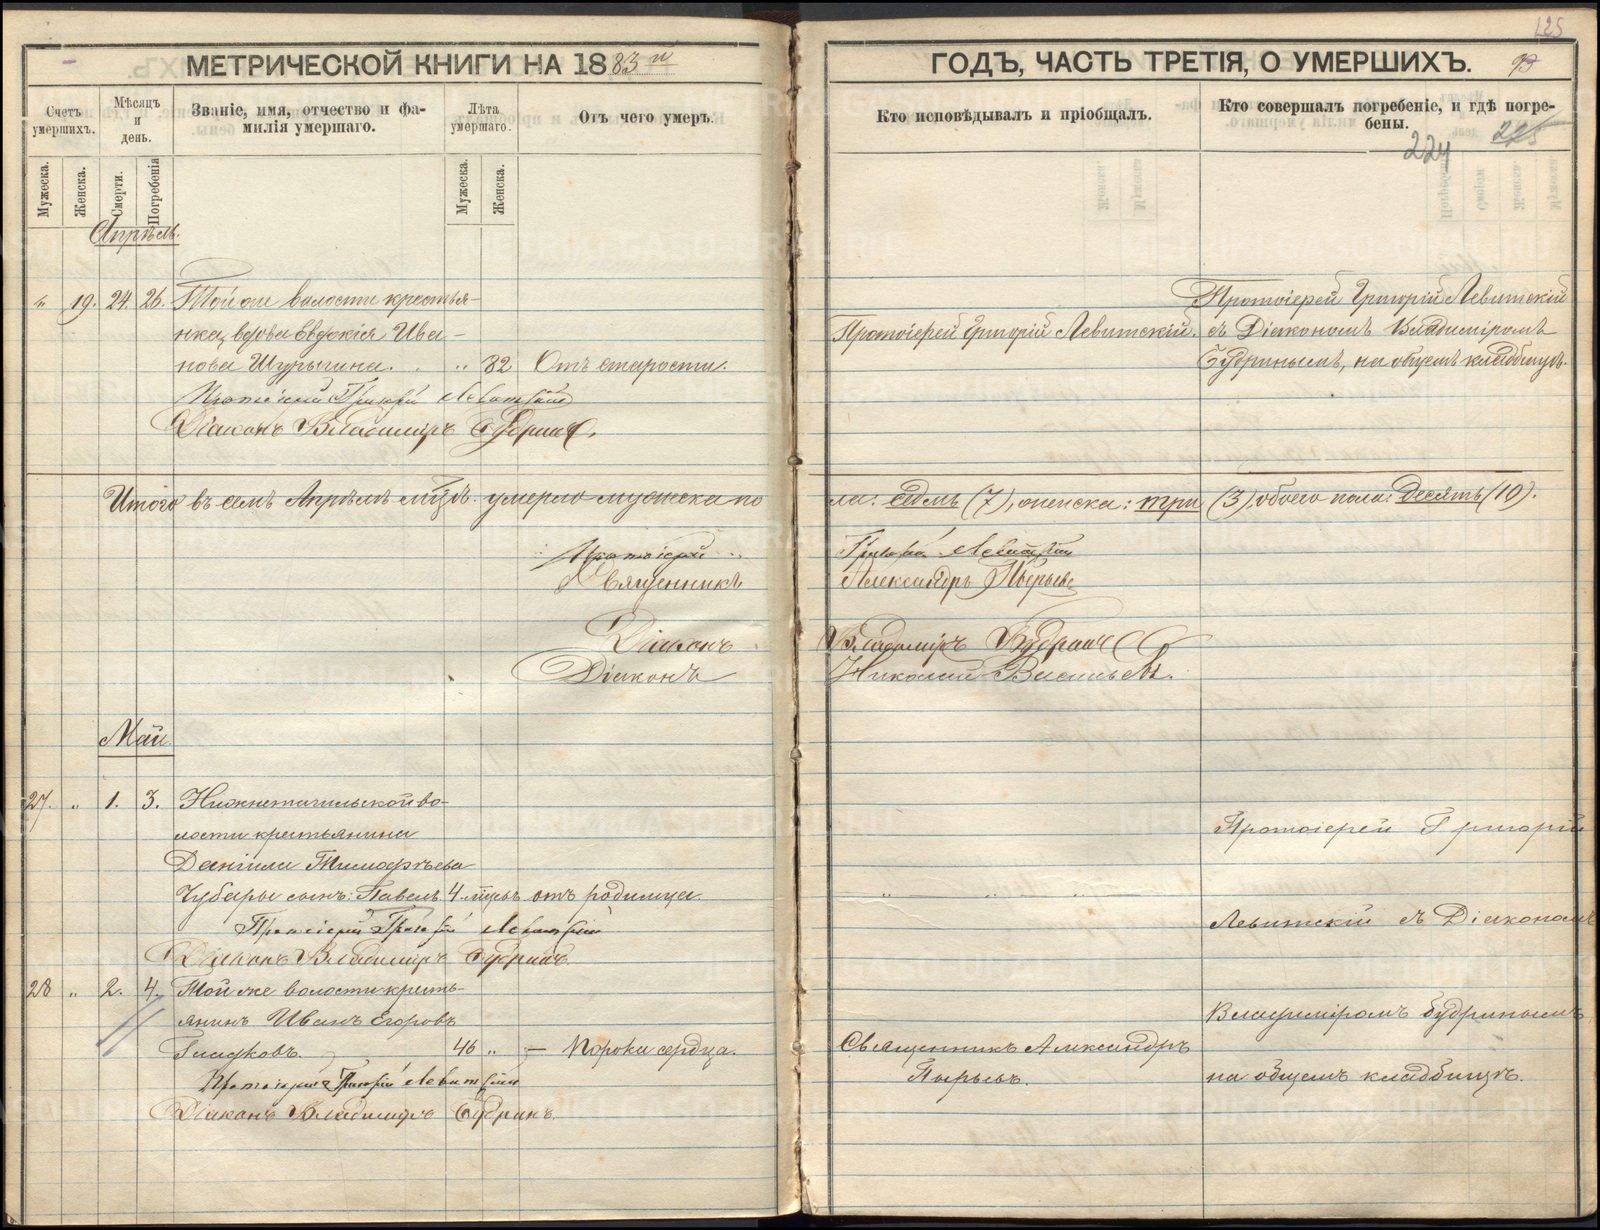 125
МЕТРИЧЕСКОЙ КНИГИ НА 1883 й
ГОДЪ, ЧАСТЬ ТРЕТІЯ, О УМЕРШИХЪ.
Счетъ умершихъ.
Мѣсяцъ и день.
Званіе, имя, отчество и фамилія умершаго.
Лѣта умершаго.
Отъ чего умеръ.
Кто исповѣдывалъ и пріобщалъ.
Кто совершалъ погребеніе, и гдѣ погребены.
224
225
Мужеска.
Женска.
Смерти.
Погребенія
Мужеска.
Женска.
Апрѣль.
" 19. 24. 26. Той же волости крестья-
нка, вдова Евдокія Ива-
нова Шурыгина. " 82 Отъ старости.
Протоіерей Григорій Левитскій
Діаконъ Владиміръ Будринъ.
Протоіерей Григорій Левитскій.
Протоіерей Григорій Левитскій
съ Діакономъ Владиміромъ
Будринымъ, на общемъ кладбищѣ.
Итого въ семъ Апрѣлѣ мѣсяцѣ умерло мужеска по
ла: седмь (7), женска: три (3), обоего пола: Десять (10).
Протоіерей Григорій Левитскій
Священникъ Александръ Пырьевъ
Діаконъ Владиміръ Будринъ
Діаконъ Николай Васильевъ.
Май.
27. " 1. 3. Нижнетагильской во-
лости крестьянина
Даніила Тимофѣева
Чубары сынъ: Павелъ 4 мѣсяц отъ родимца.
Протоіерей Григорій Левитскій
Діаконъ Владиміръ Будринъ.
" " "
Протоіерей Григорій
Левитскій съ Діакономъ
28 " 2. 4. Той же волости кресть-
янинъ Иванъ Егоровъ
Гладковъ. 46 " — Пороки сердца.
Протоіерей Григорій Левитскій
Діаконъ Владиміръ Будринъ.
Священникъ Александръ
Пырьевъ.
Владиміромъ Будринымъ
на общемъ кладбищѣ.